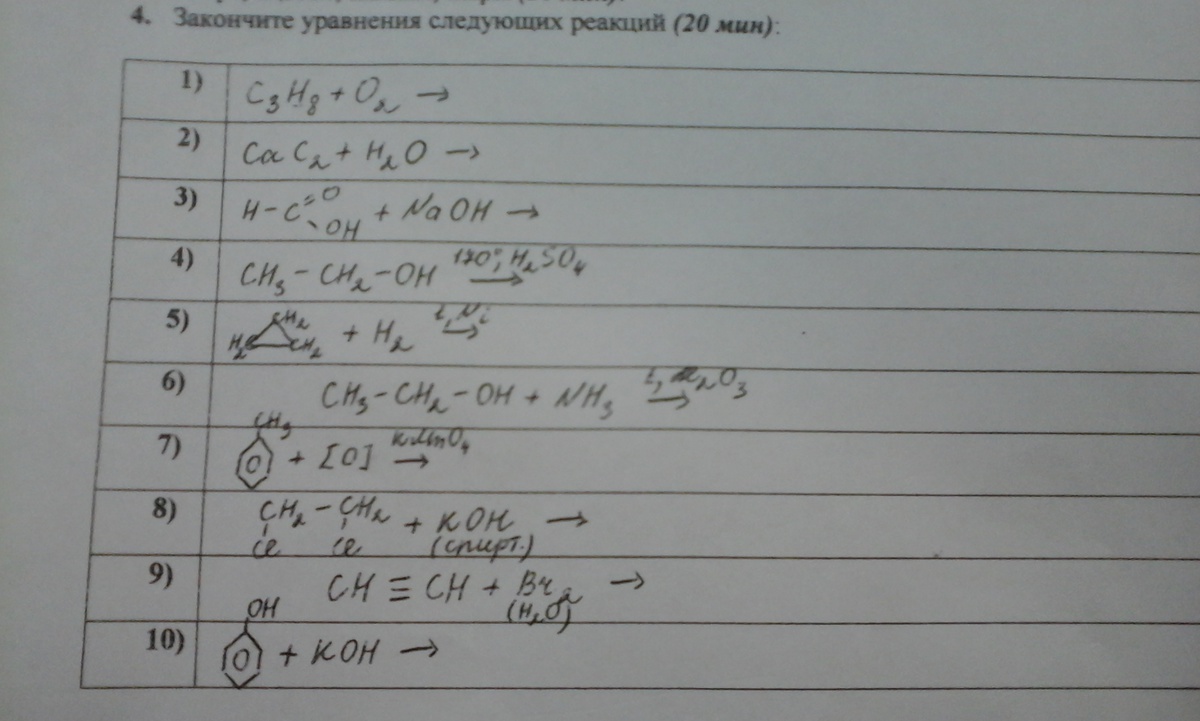 4. Закончите уравнения следующих реакций (20 мин):
1) C₃H₈ + O₂ →
2) CaC₂ + H₂O →
3) H-C=O -OH + NaOH →
4) CH₃-CH₂-OH 170°, H₂SO₄ →
5) H₂C CH₂ CH₂ + H₂ t, Ni →
6) CH₃-CH₂-OH + NH₃ t, Al₂O₃ →
7) CH₃ + [O] KMnO₄ →
8) CH₂-CH₂ Cl Cl + KOH (спирт.) →
9) CH≡CH + Br₂ (H₂O) →
10) OH + KOH →